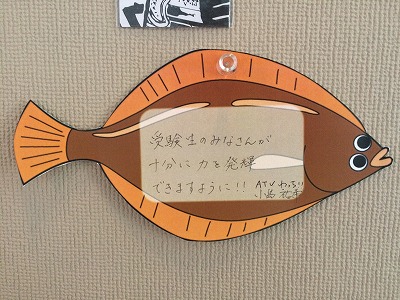 受験生のみなさんが
十分に力を発揮
できますように!! ATV わっち!!
小島